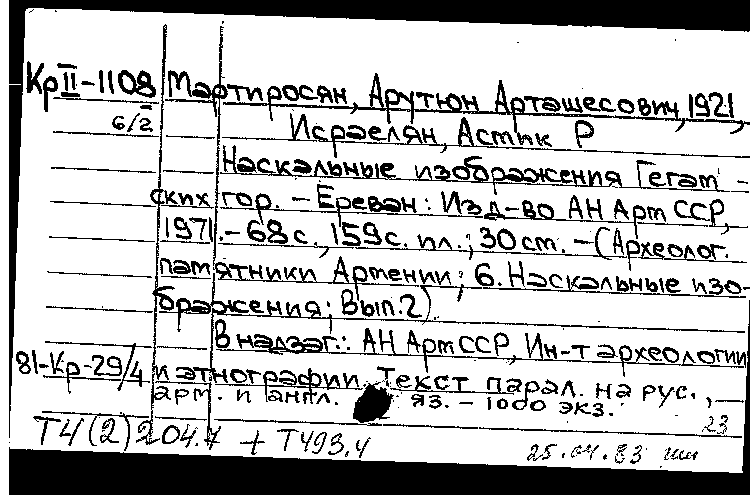 КрII-1108 Мартиросян, Арутюн Арташесович, 1921,
6/2 Исраелян, Астик Р
Наскальные изображения Гегам-
ских гор. - Ереван: Изд-во АН Арм ССР,
1971. - 68 с., 159 с. ил.; 30 см. - (Археолог.
памятники Армении; 6. Наскальные изо-
бражения; Вып. 2).
В надзаг.: АН Арм ССР, Ин-т археологии
81-Кр-29/4 и этнографии. Текст парал. на рус.,
арм. и англ. яз. - 1000 экз.
23
Т4(2)204.7 + Т493.4 25.04.83